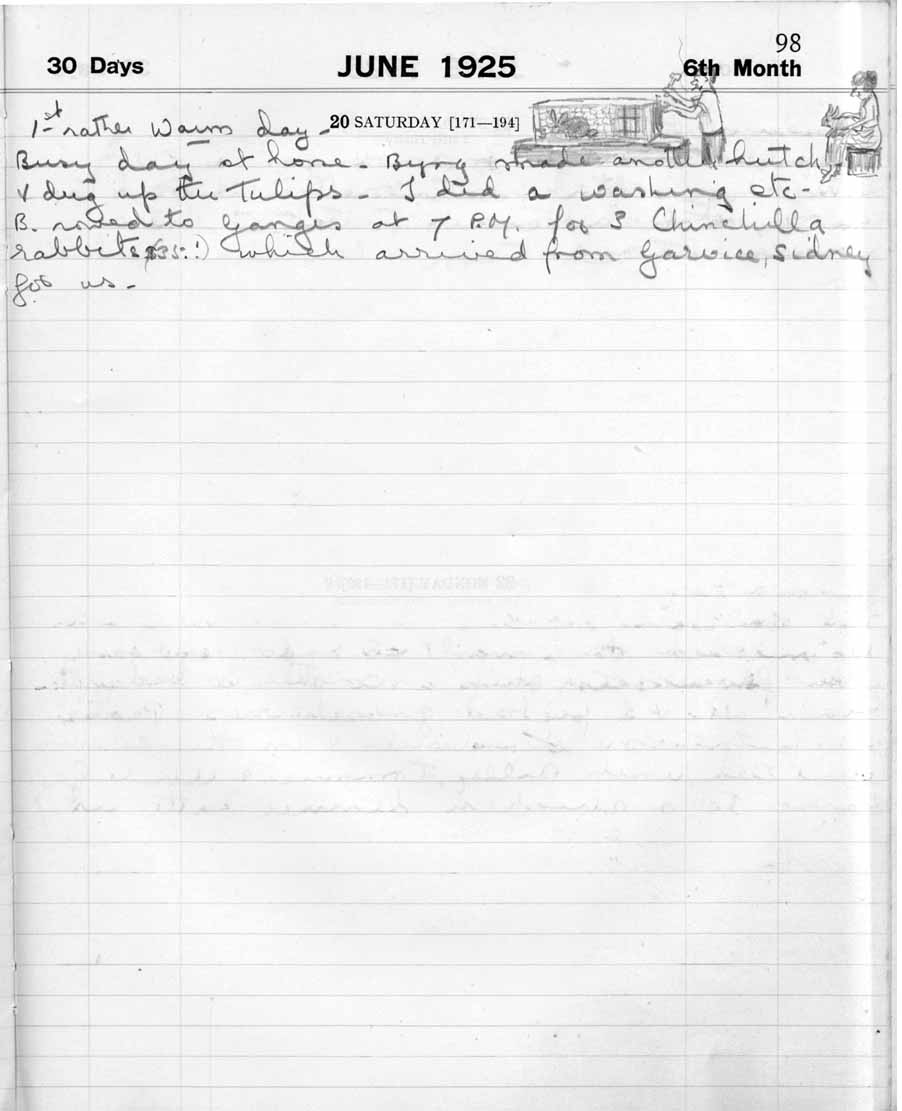 98
30 Days JUNE 1925 6th Month
20 SATURDAY [171—194]
1st rather warm day -
Busy day at home - Byng made another hutch -
& dug up the Tulips - I did a washing etc -
B. rowed to Ganges at 7 P.M. for 3 Chinchilla
rabbits ($35.!) which arrived from Garvice, Sidney
for us -